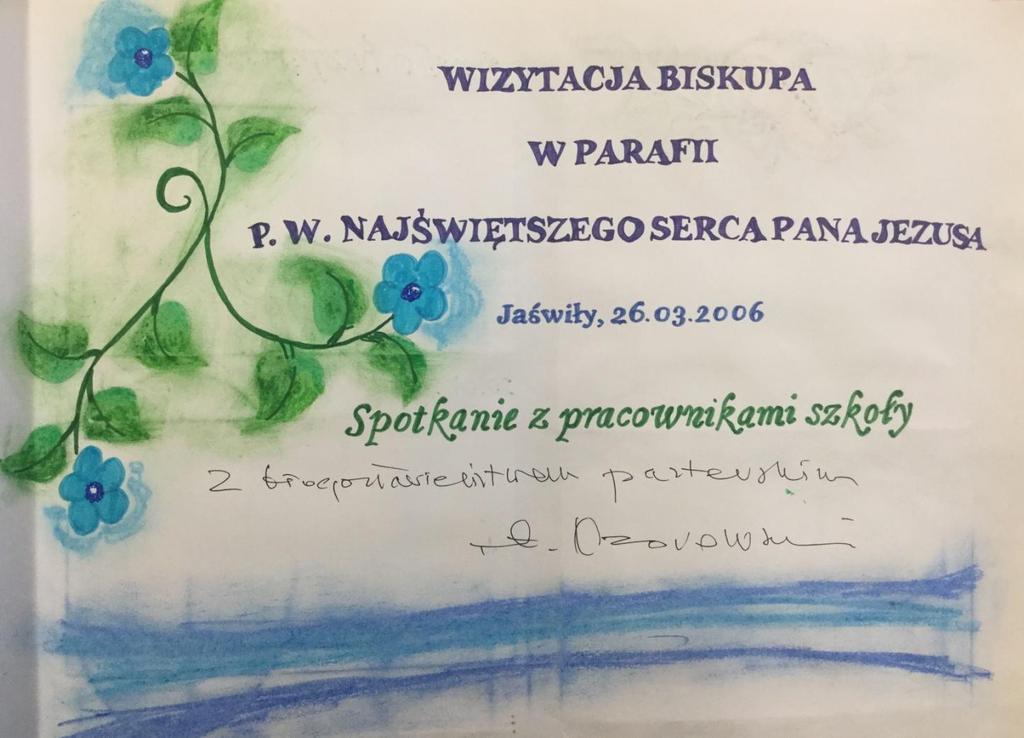 WIZYTACJA BISKUPA
W PARAFII
P. W. NAJŚWIĘTSZEGO SERCA PANA JEZUSA
Jaświły, 26.03.2006
Spotkanie z pracownikami szkoły
Z błogosławieństwem pasterskim
Ozorowski